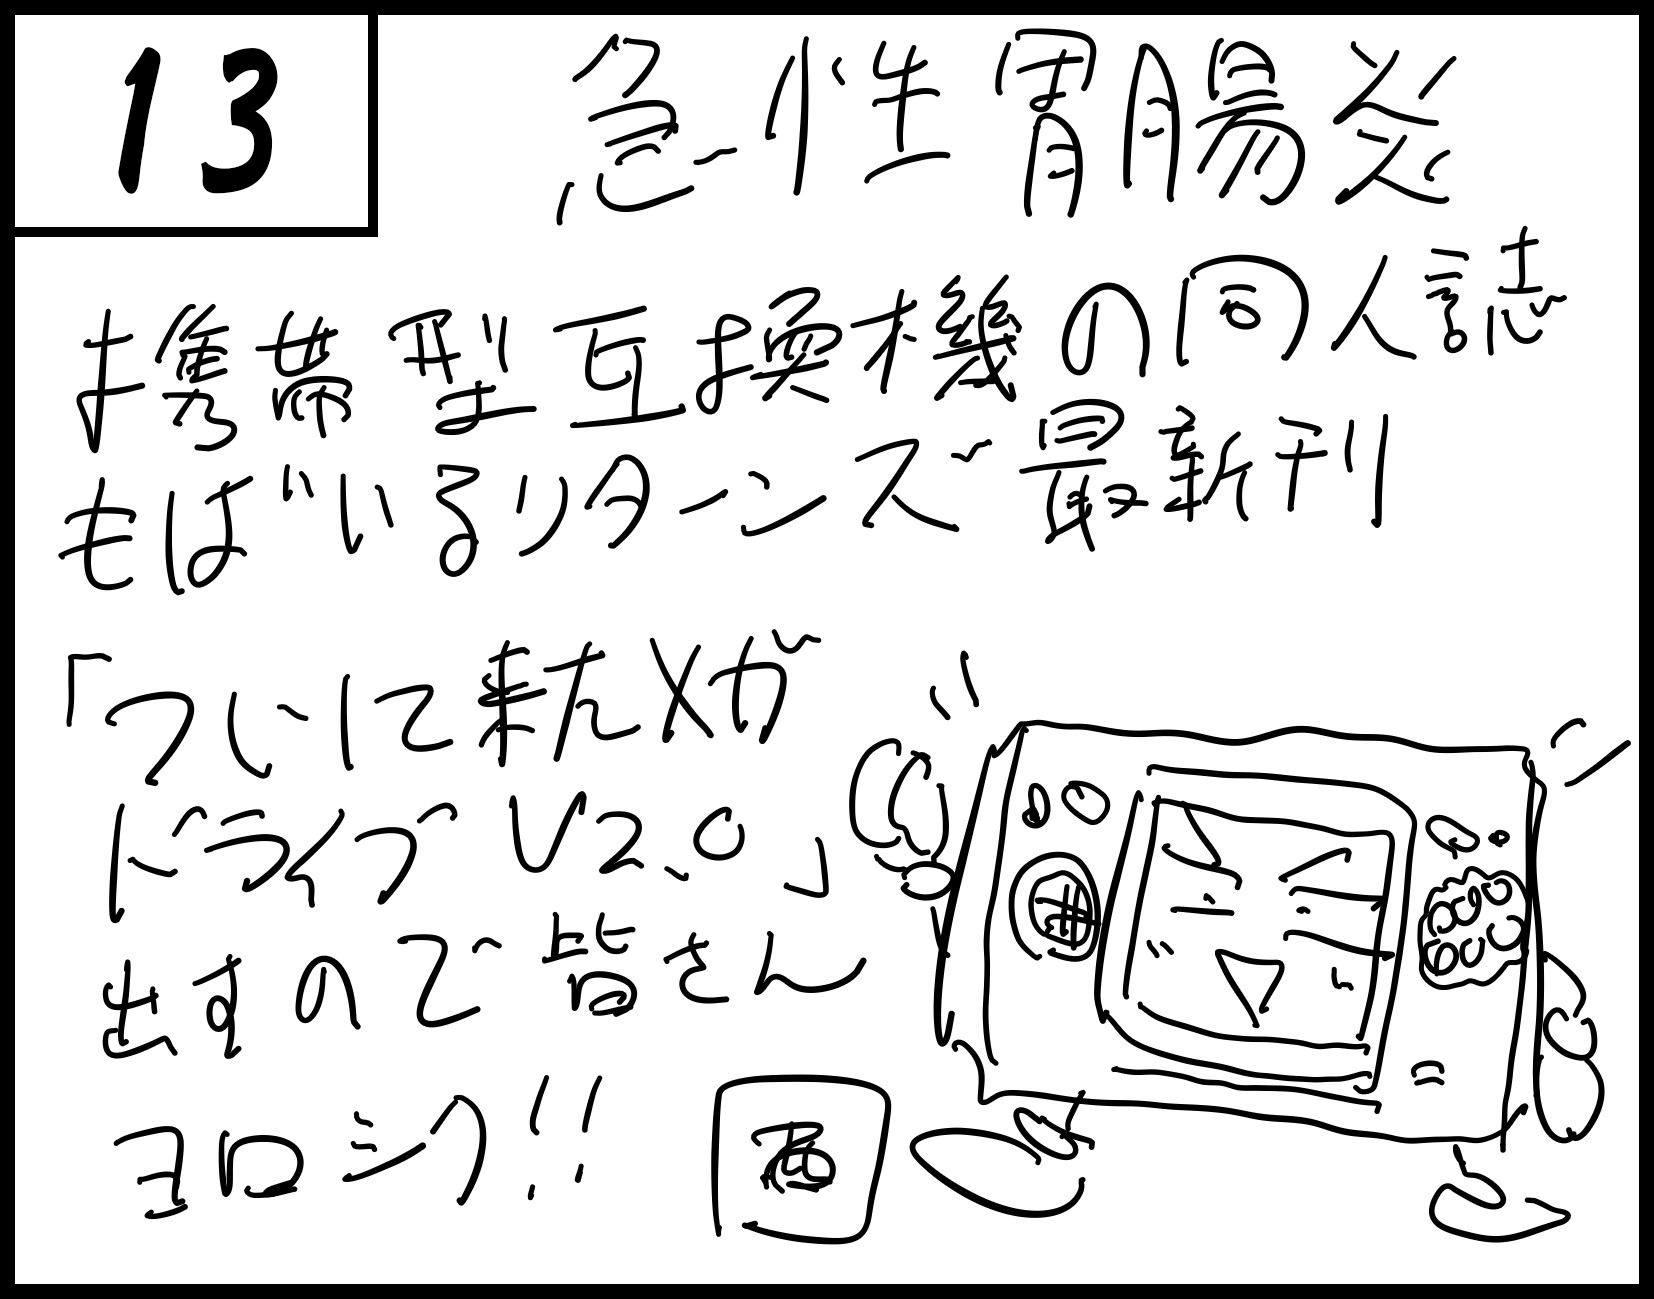 13
急性胃腸炎
携帯型互換機の同人誌
もばいるリターンズ最新刊
「ついに来たメガ
ドライブV2.0」
出すので皆さん
ヨロシク!!